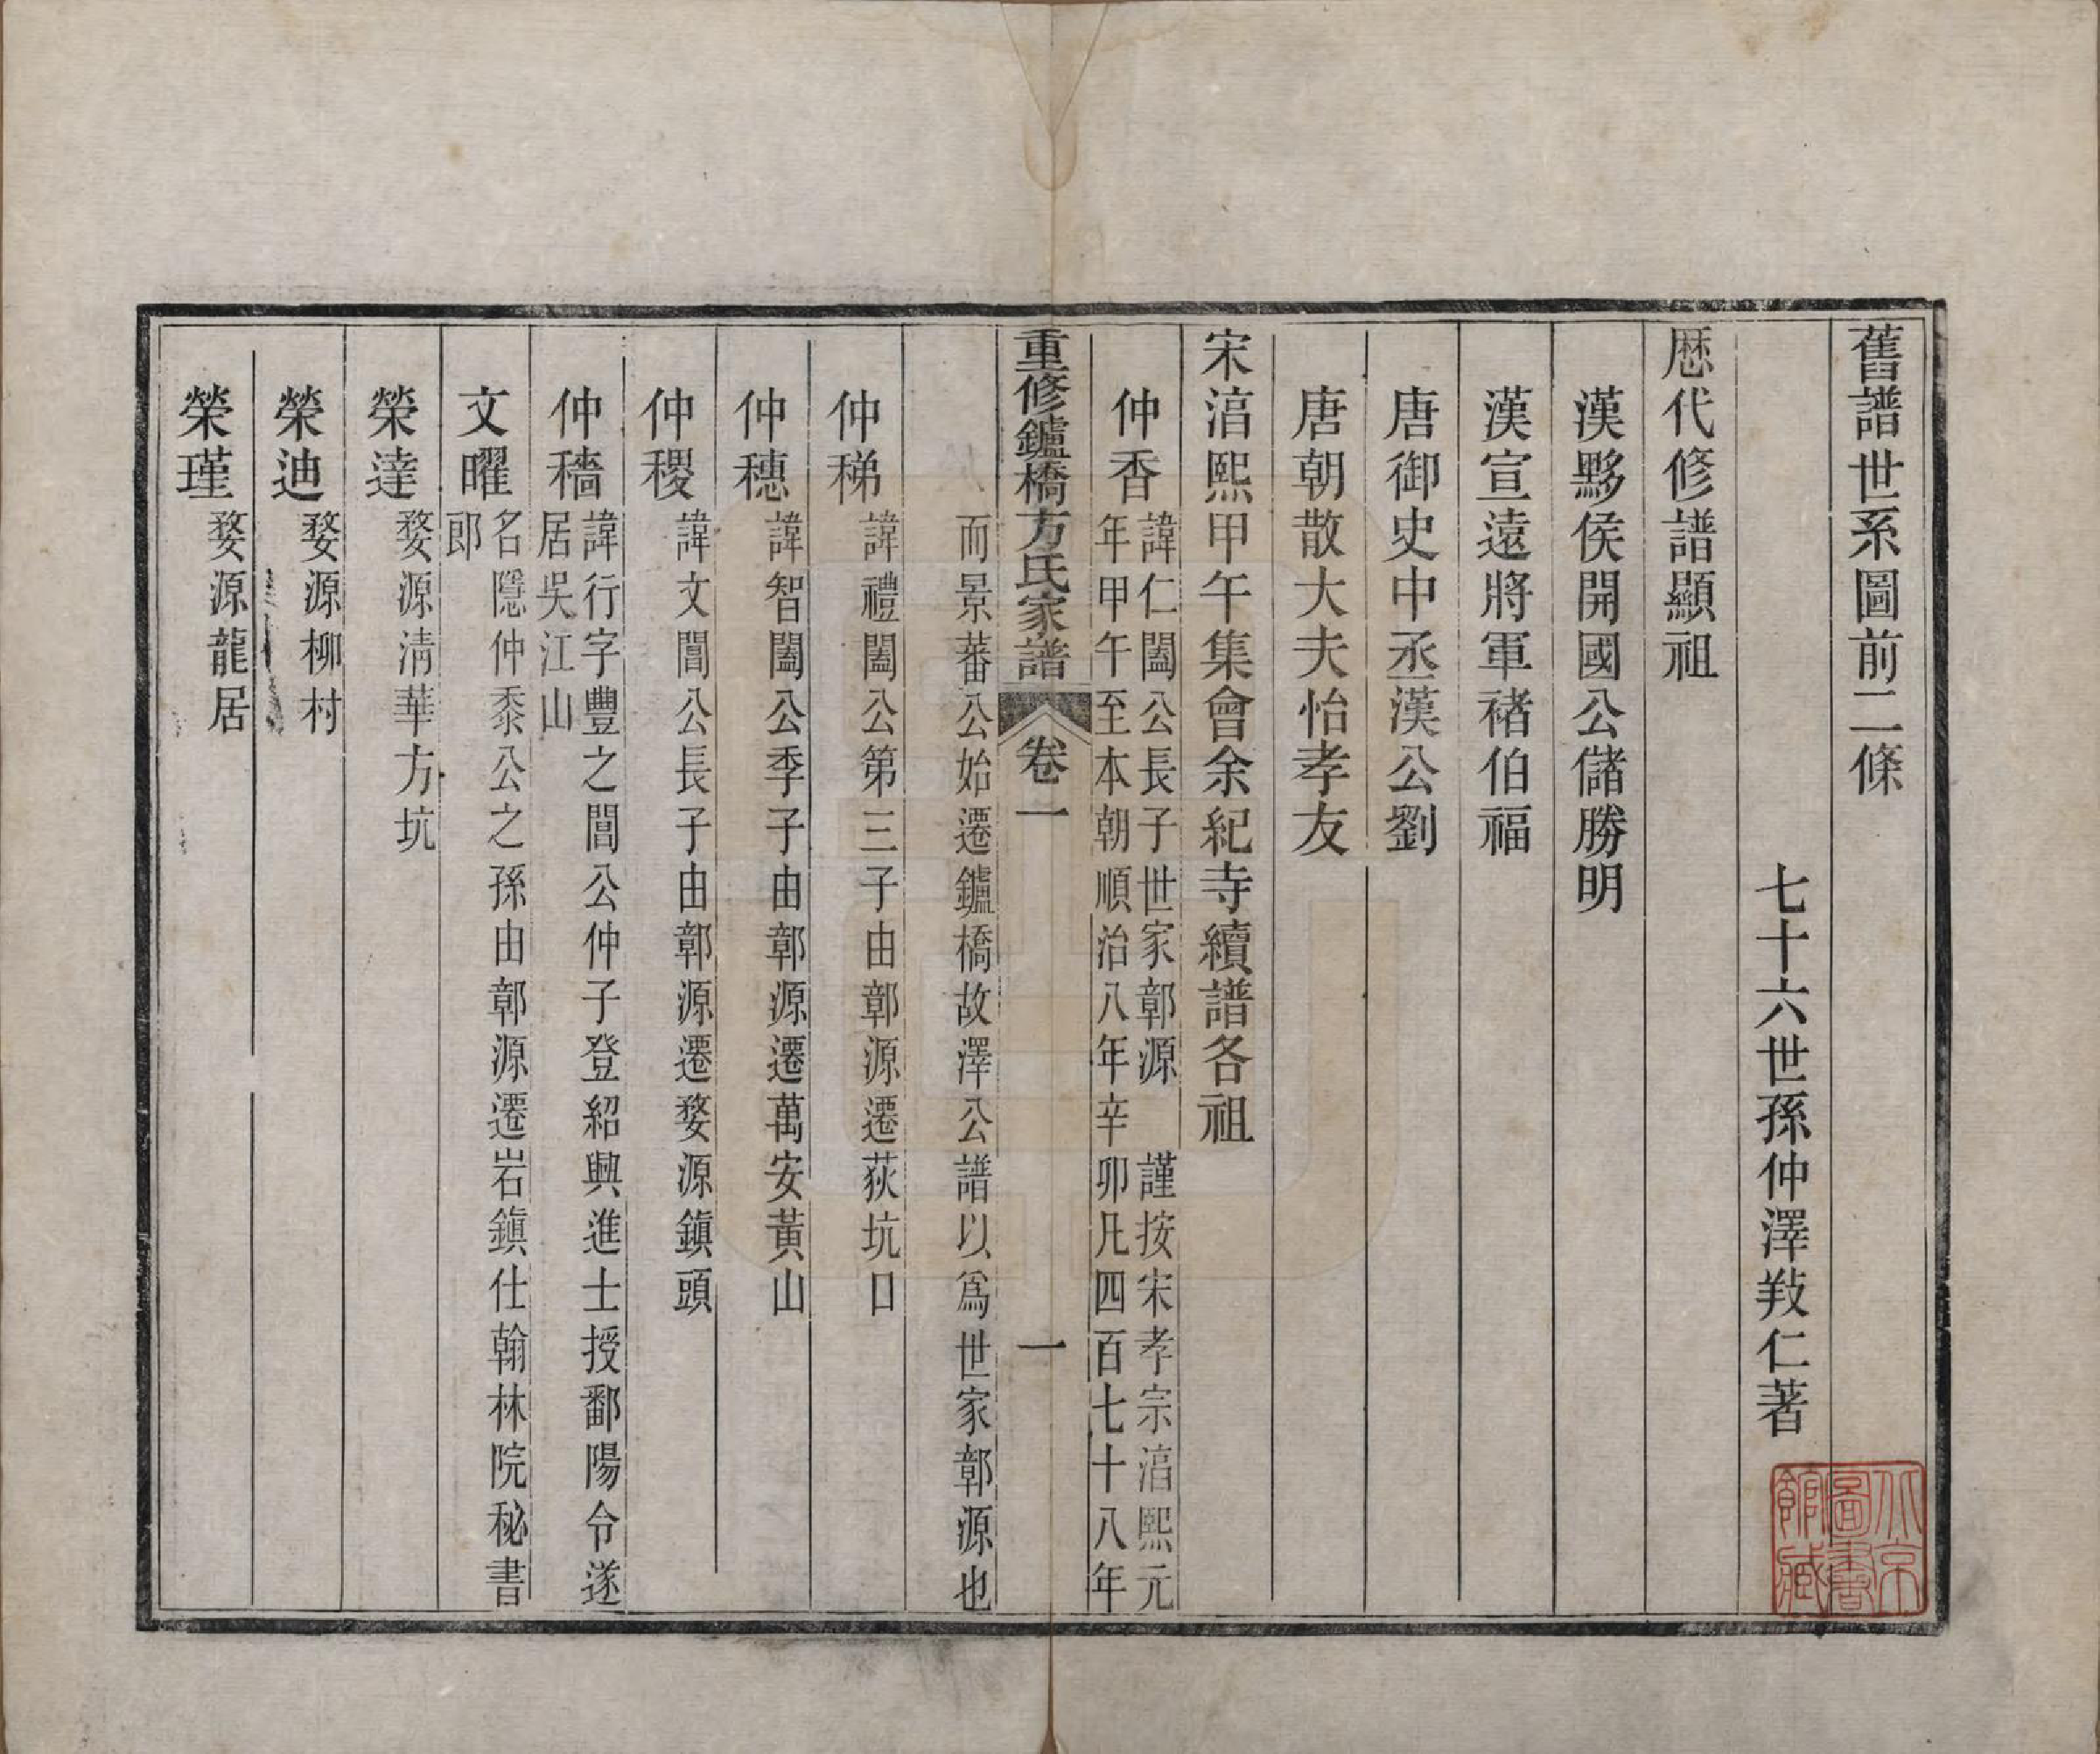 舊譜世系圖前二條
七十六世孫仲澤敦仁著
歷代修譜顯祖
漢黟侯開國公儲勝明
漢宣遠將軍褚伯福
唐御史中丞漢公劉
唐朝散大夫怡孝友
宋淯熙甲午集會余紀寺續譜各祖
仲香 諱仁闔公長子世家鄣源 謹按宋孝宗淯熙元
年甲午至本朝順治八年辛卯凡四百七十八年
重修鑪橋方氏家譜 卷一 一
而景蕃公始遷鑪橋故澤公譜以為世家鄣源也
仲稊 諱禮闔公第三子由鄣源遷荻坑口
仲穗 諱智闔公季子由鄣源遷萬安黃山
仲稷 諱文閶公長子由鄣源遷婺源鎮頭
仲穡 諱行字豐之閶公仲子登紹興進士授鄱陽令遂
居吳江山
文曜 名隱仲黍公之孫由鄣源遷岩鎮仕翰林院秘書
郎
榮達 婺源清華方坑
榮迪 婺源柳村
榮瑾 婺源龍居
北京圖書館藏